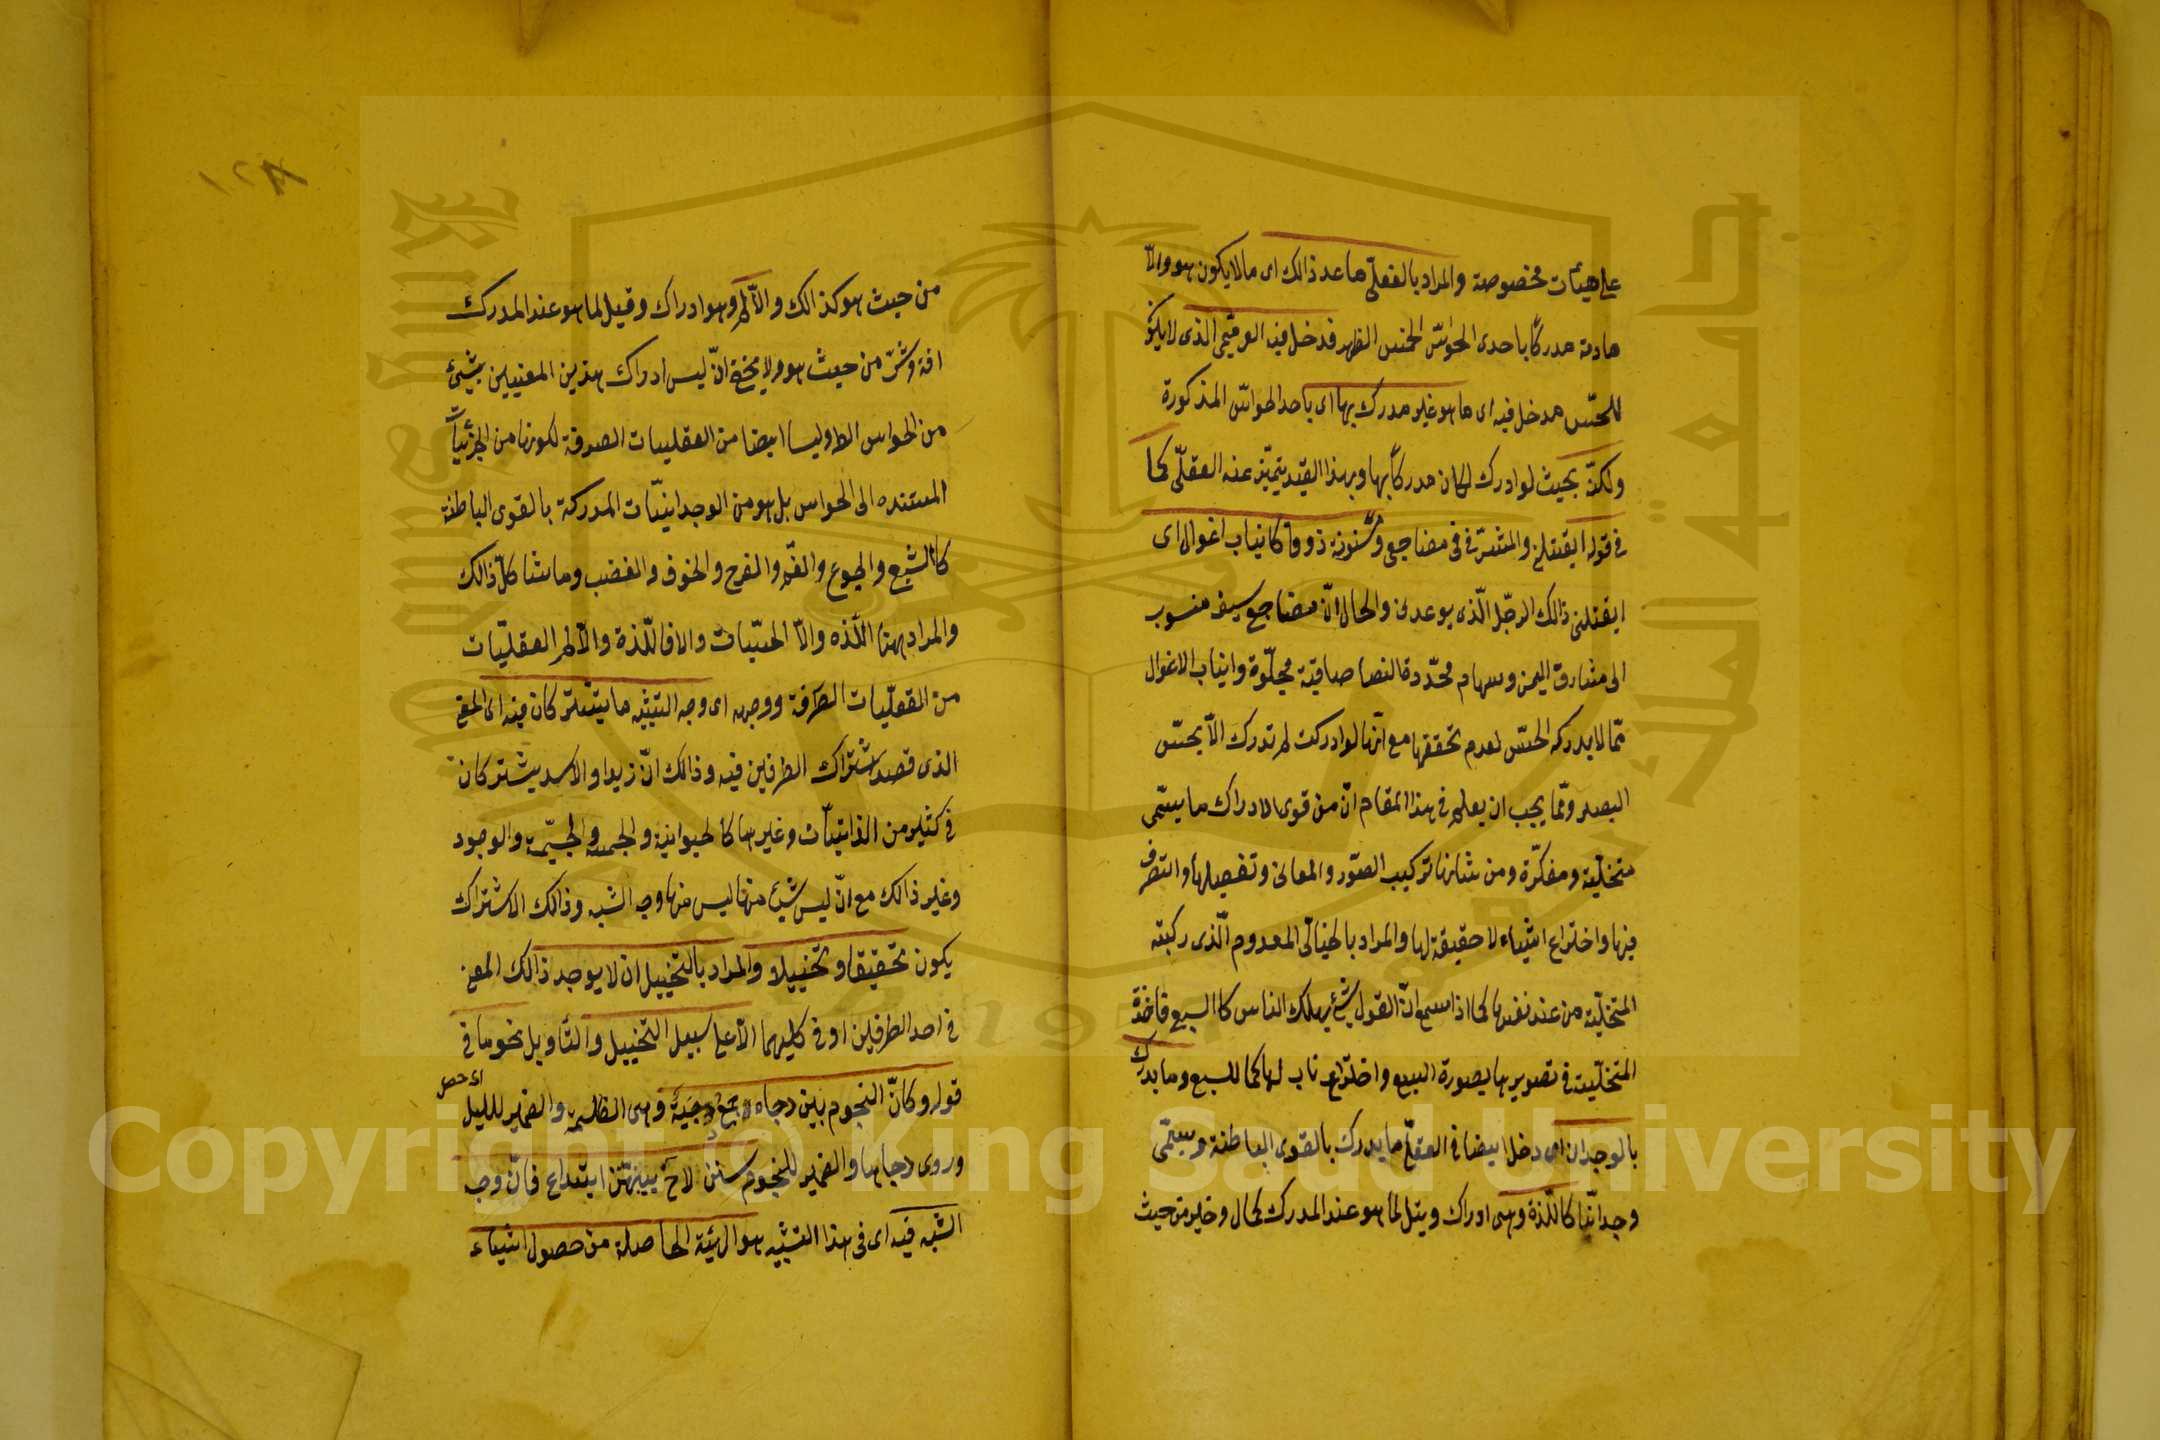 على هيئات مخصوصة والمراد بالعقلى ما عد ذالك اى ما لا يكون هو ولا
مادته مدركًا باحدى الحواسّ الخمس الظهر فدخل فيه الوهمّى الذى لا يكو
للحسّ مدخل فيه اى ما هو غير مدرك بها اى باحد الحواسّ المذكورة
ولكنّ بحيث لو ادرك لكان مدركًا بها وبهذا القيد يتميّز عنه العقلّى كما
فى قوله ايقتلنى والمشرفى مضاجعى ومسنونة ذوقا كانياب اغوال اى
ايقتلنى ذالك الرجّل الّذى يوعدنى والحال انّ مضاجع سيف منسوب
الى مشارق اليمن وسهام محدّدة النصا صافية مجلّوة وانياب الاغوال
ممّا لا يدركه الحسّ لعدم تحققها مع انّها لو ادركت لم تدرك الاّ بحسّ
البصر وممّا يجب ان يعلم فى هذا المقام انّ من قوى الادراك ما يسمّى
متخلّية ومفكّرة ومن شانها تركيب الصّور والمعانى وتفصيلها والتصرف
فيها واختراع اشياء لا حقيقة لها والمراد بالخيالّى المعدوم الّذى ركبته
المتخلّية من عند نفسها كما اذا سمع انّ الغول شيئ يهلك الناس كا السبع فاخذة
المتخلّية فى تصويرها بصورة السبع واختراع ناب لها كما للسبع وما يدرك
بالوجدان اى دخل ايضا فى العقلّى ما يدرك بالقوى الباطنة ويسمّى
وجدانّيا كاللّذة وهى ادراك ونيل لما هو عند المدرك كمال وخير من حيث
من حيث هو كذالك والألم وهو ادراك وقيل لما هو عند المدرك
افة وشرّ من حيث هو ولا يخفى انّ ليس ادراك هذين المعنيين بشيئ
من الحواس الظ وليسا ايضا من العقليات الصرفة لكونها من الجزئيّات
المستنده الى الحواس بل هو من الوجدانيّات المدركة بالقوى الباطنة
كا الشبع والجوع والغمّ والفرح والخوف والغضب وما شا كلّ ذالك
والمراد ههنا اللّذه والا الحسّيات والا فاللّذة والألم العقليّات
من العقليّات الصرفة ووجهه اى وجه التشبيه ما يشتركان فيه اى المعنى
الذى قصد اشتراك الطرفين فيه وذالك انّ زيدا والاسد يشتركان
فى كثير من الذاتيّات وغيرها كا لحيوانية والجسمية والوجود
وغير ذالك مع انّ ليس شيئ منها ليس منها وجه الشبه وذالك الاشتراك
يكون تحقيقا وتخييلا والمراد بالتخييل ان لا يوجد ذالك المعنى
فى احد الطرفين او فى كليهما الاّ على سبيل التخييل والتأويل نحو ما فى
قوله وكانّ النجوم بين دجاه جمع دجية وهى الظلمة والضمير لليل
وروى دجاها والضمير للنجوم سنن لاح بينهنّ ابتداع فانّ وجه
الشبه فيه اى فى هذا التشبيه هو الهيئة الحاصلة من حصول اشياء
Copyright © King Saud University
King Saud University
جامعة الملك سعود
1957